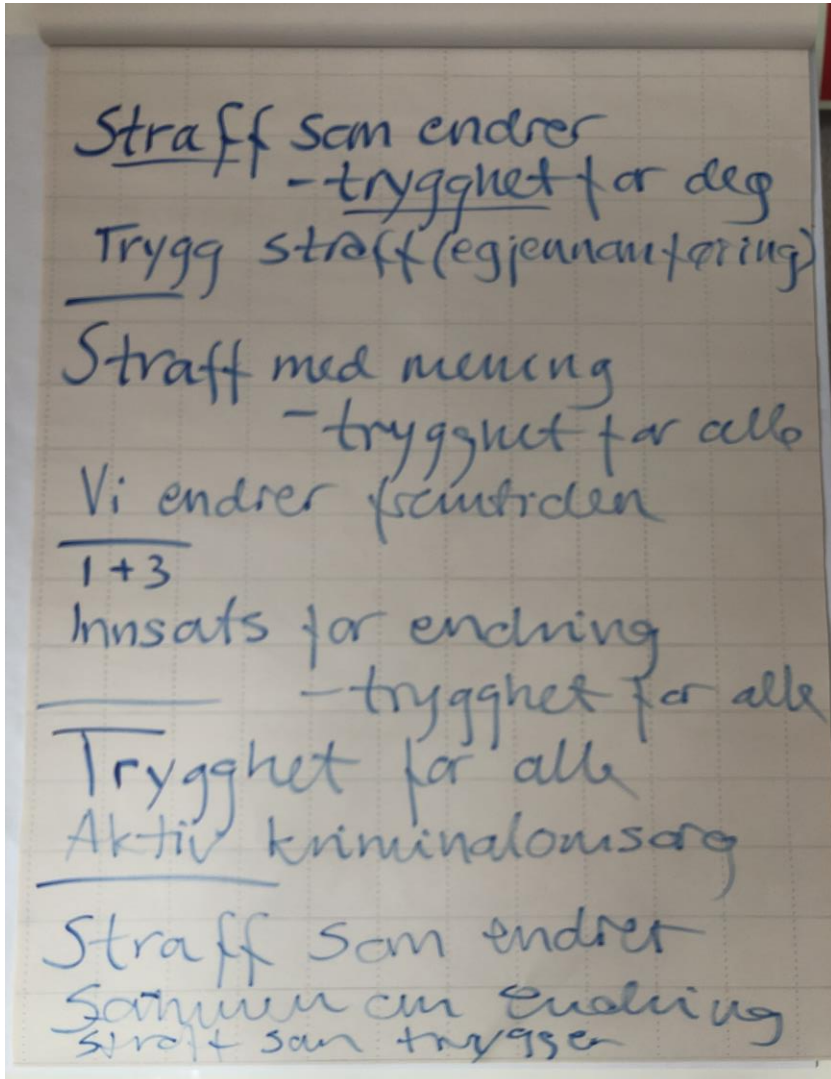 Straff som endrer
- trygghet for deg
Trygg straff(egjennomføring)
Straff med mening
- trygghet for alle
Vi endrer fremtiden
1+3
Innsats for endring
- trygghet for alle
Trygghet for alle
Aktiv kriminalomsorg
Straff som endrer
Sammen om endring
straff som trygger